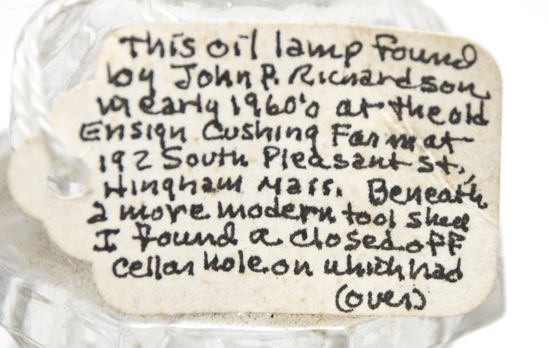 This oil lamp found
by John P. Richardson
in early 1960's at the old
Ensign Cushing Farm at
192 South Pleasant St.,
Hingham Mass. Beneath
a more modern tool shed
I found a closed off
cellar hole on which had
(over)